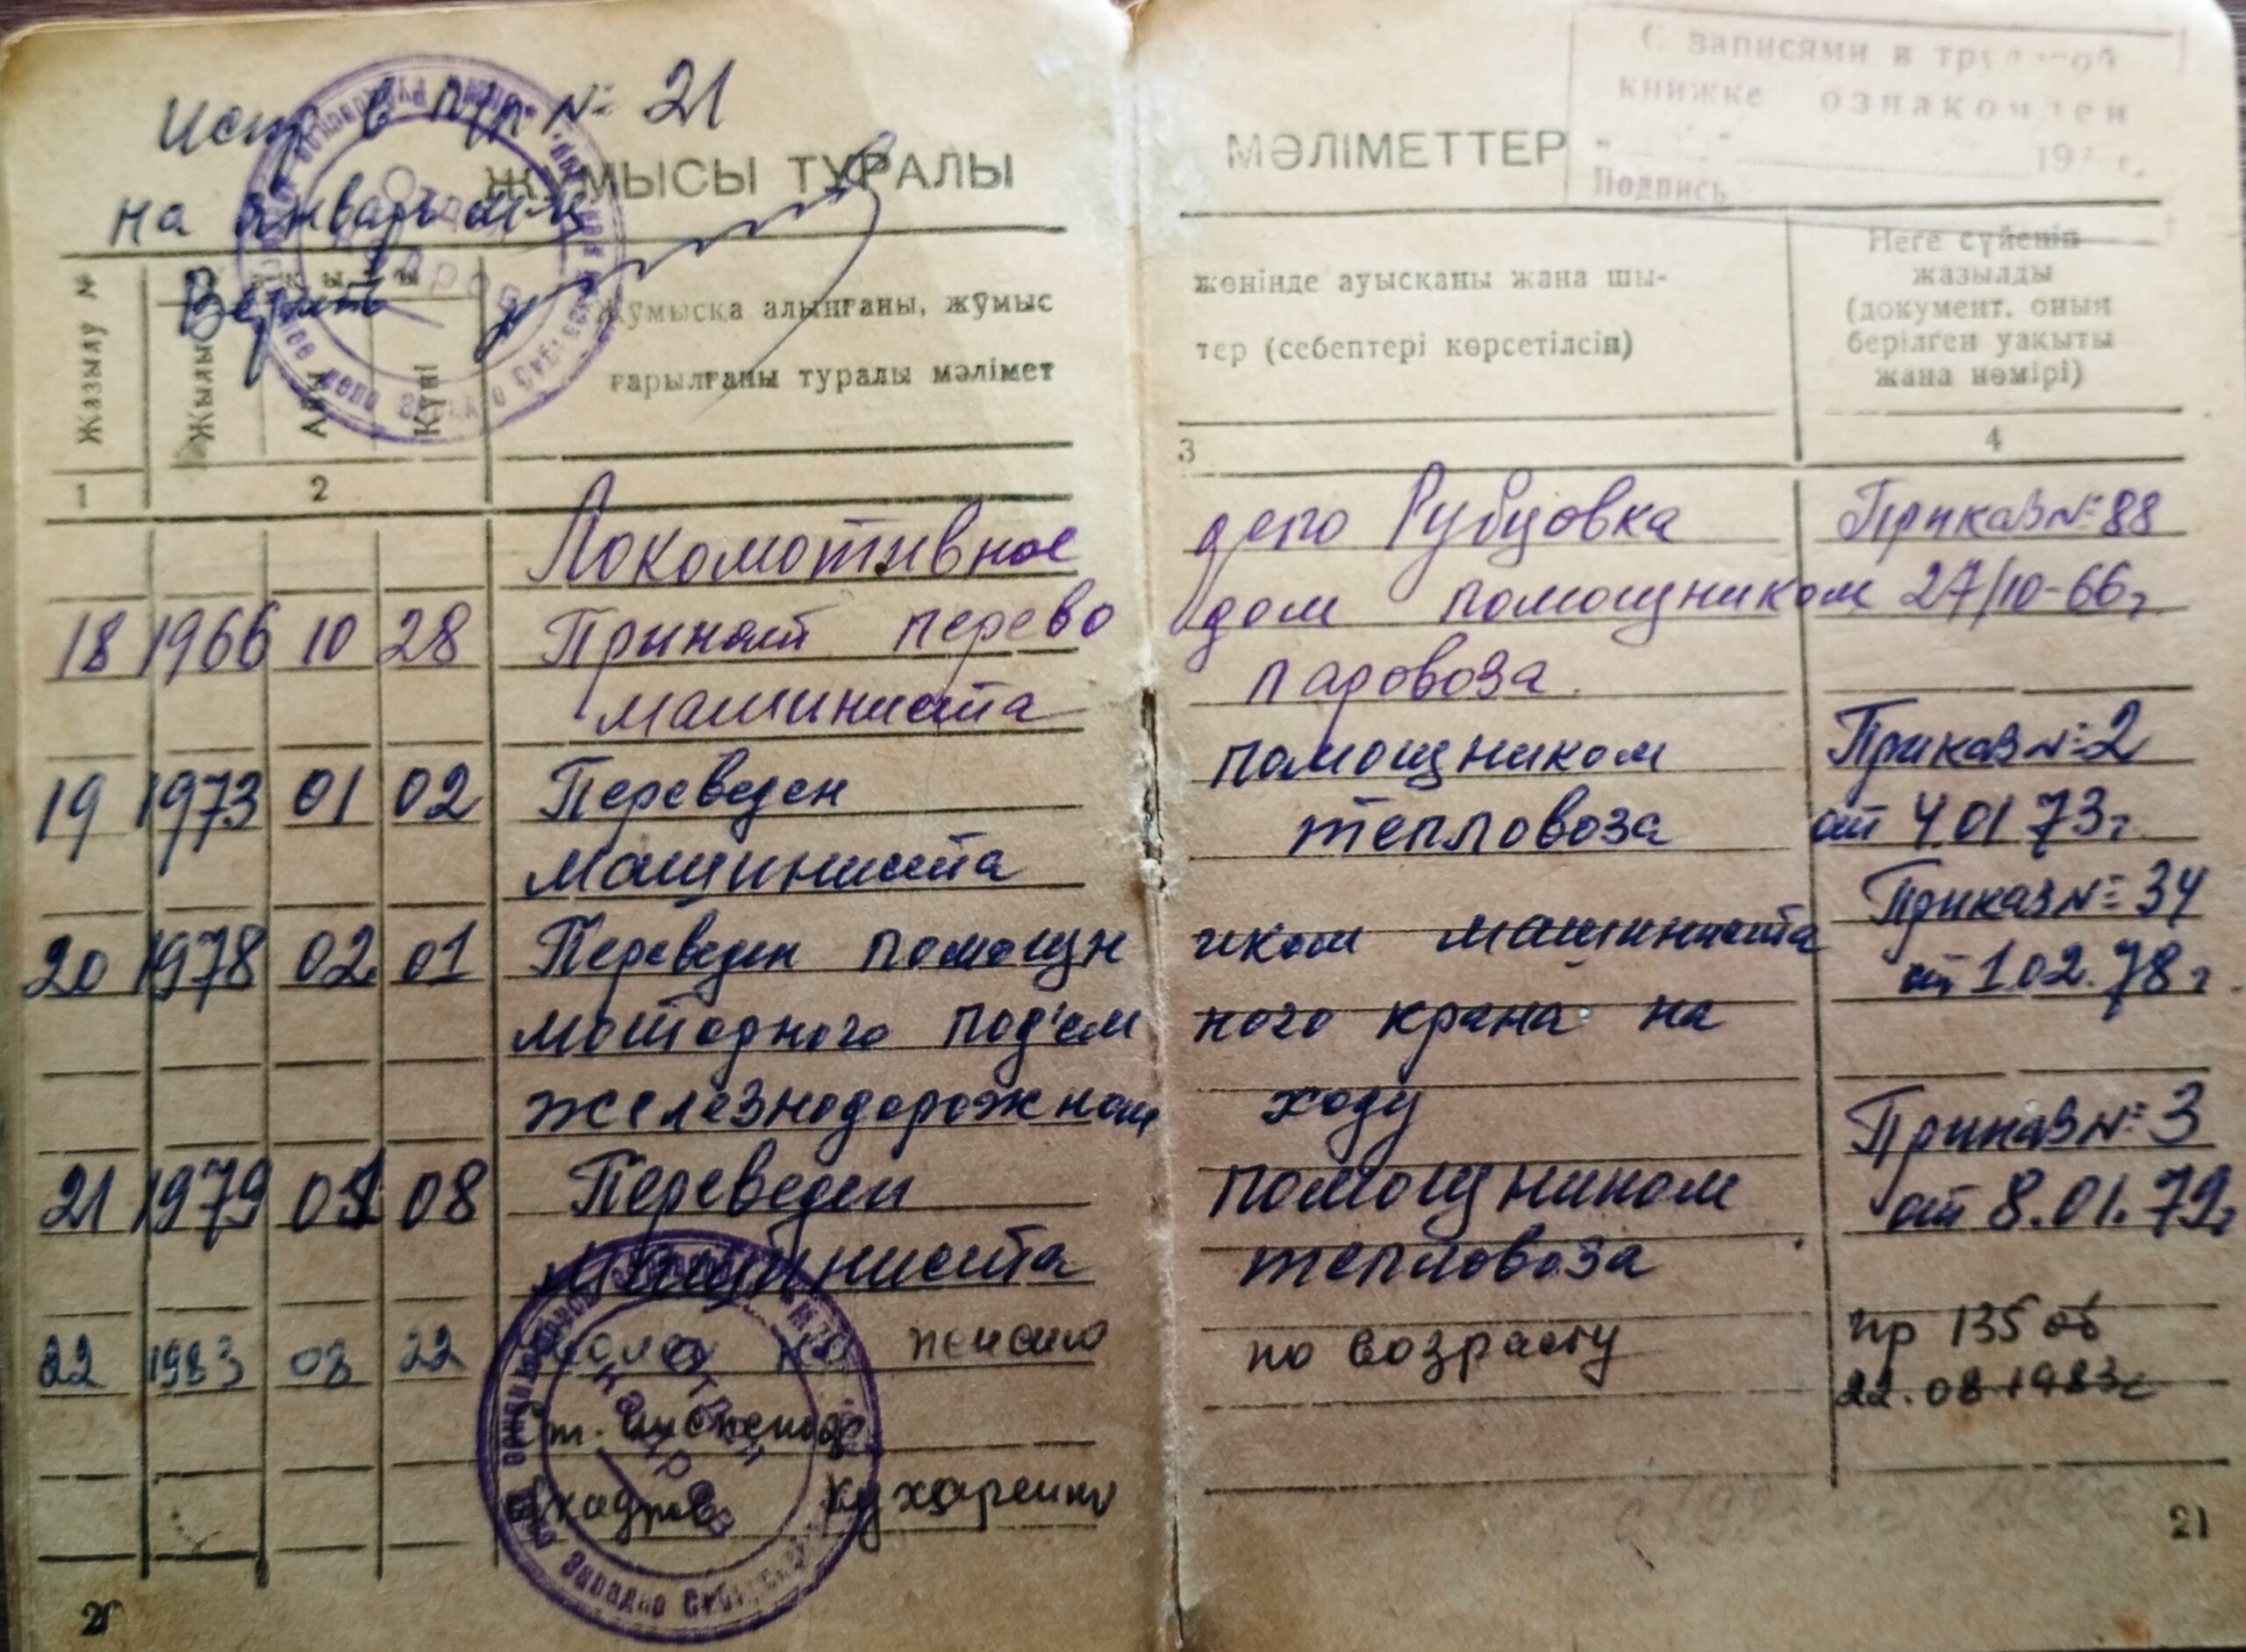 Испр в п/п № 21
на январь м-ц
Верить
Отдел
кадров
С записями в трудовой
книжке ознакомлен
197 г.
Подпись
ЖҰМЫСЫ ТУРАЛЫ МӘЛІМЕТТЕР
Жазылу №
Жылы
Айы
Күні
Жұмысқа алынғаны, жұмыс жөнінде ауысканы жана шы-
ғарылғаны туралы мәлімет тер (себептері көрсетілсін)
Неге сүйеніп
жазылды
(документ, оның
берілген уақыты
жана нөмірі)
1 2 3 4
Локомотивное депо Рубцовка Приказ № 88
18 1966 10 28 Принят перево дом помощником 27/10-66г
машиниста паровоза.
19 1973 01 02 Переведен помощником Приказ № 2
машиниста тепловоза от 4.01 73г.
20 1978 02 01 Переведен помощн иком машиниста Приказ № 34
моторного под'ем ного крана на от 1.02.78г.
железнодорожном ходу
21 1979 01 08 Переведен помощником Приказ № 3
машиниста тепловоза от 8.01.79г
22 1983 08 22 на пенсию по возрасту пр 135 от
22.08 1983г
Ст. инспектор
кадров Кухаренко
Отдел
кадров
Западно Сибирской
20
21